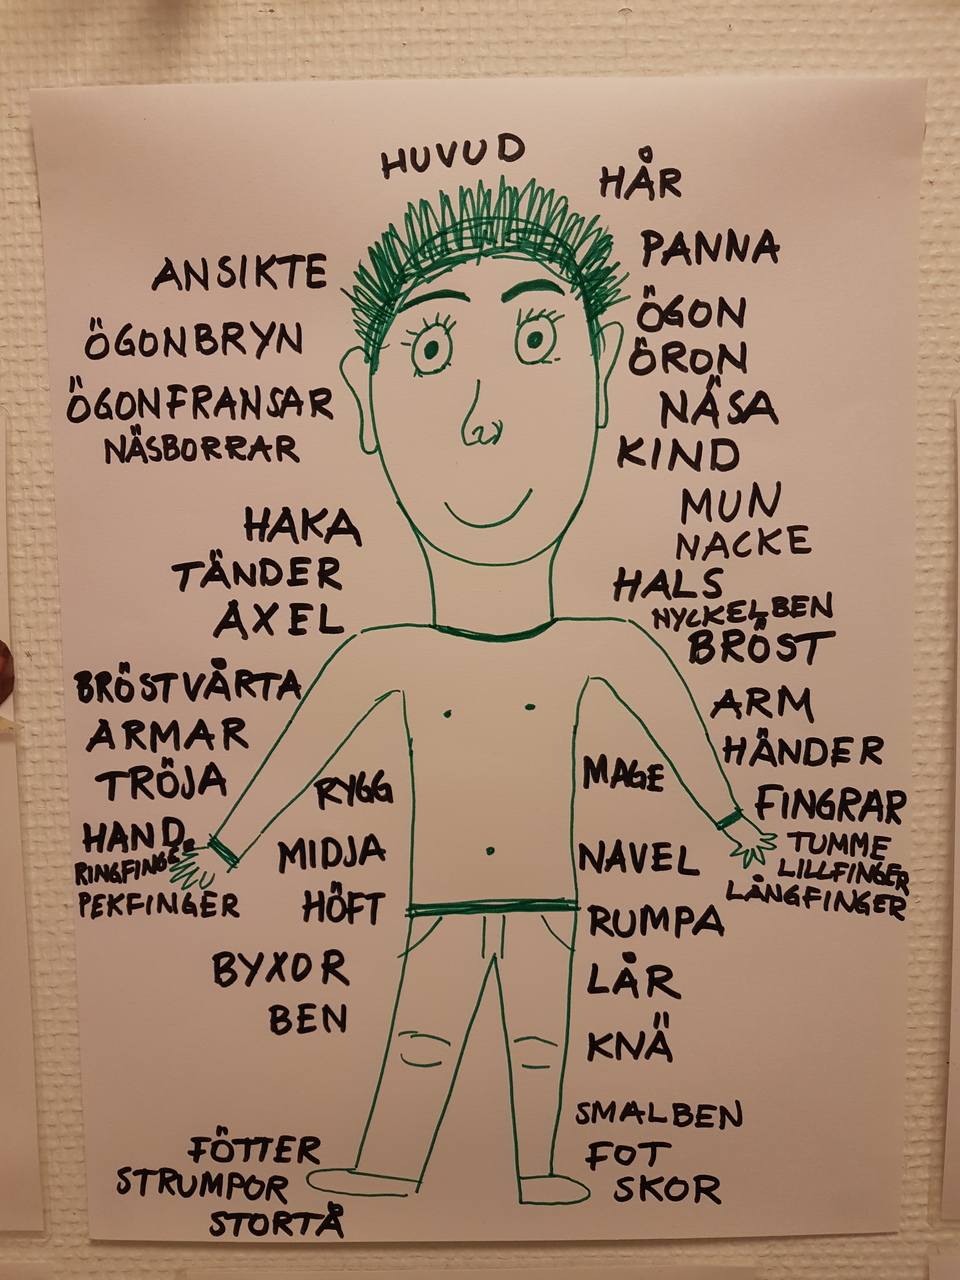 HUVUD
HÅR
PANNA
ANSIKTE
ÖGON
ÖGONBRYN
ÖRON
ÖGONFRANSAR
NÄSA
NÄSBORRAR
KIND
MUN
HAKA
NACKE
TÄNDER
HALS
AXEL
NYCKELBEN
BRÖST
BRÖSTVÅRTA
ARM
ARMAR
HÄNDER
TRÖJA
RYGG
MAGE
FINGRAR
HAND
TUMME
RINGFINGE
MIDJA
NAVEL
LILLFINGER
PEKFINGER
HÖFT
LÅNGFINGER
RUMPA
BYXOR
LÅR
BEN
KNÄ
SMALBEN
FÖTTER
FOT
STRUMPOR
SKOR
STORTÅ